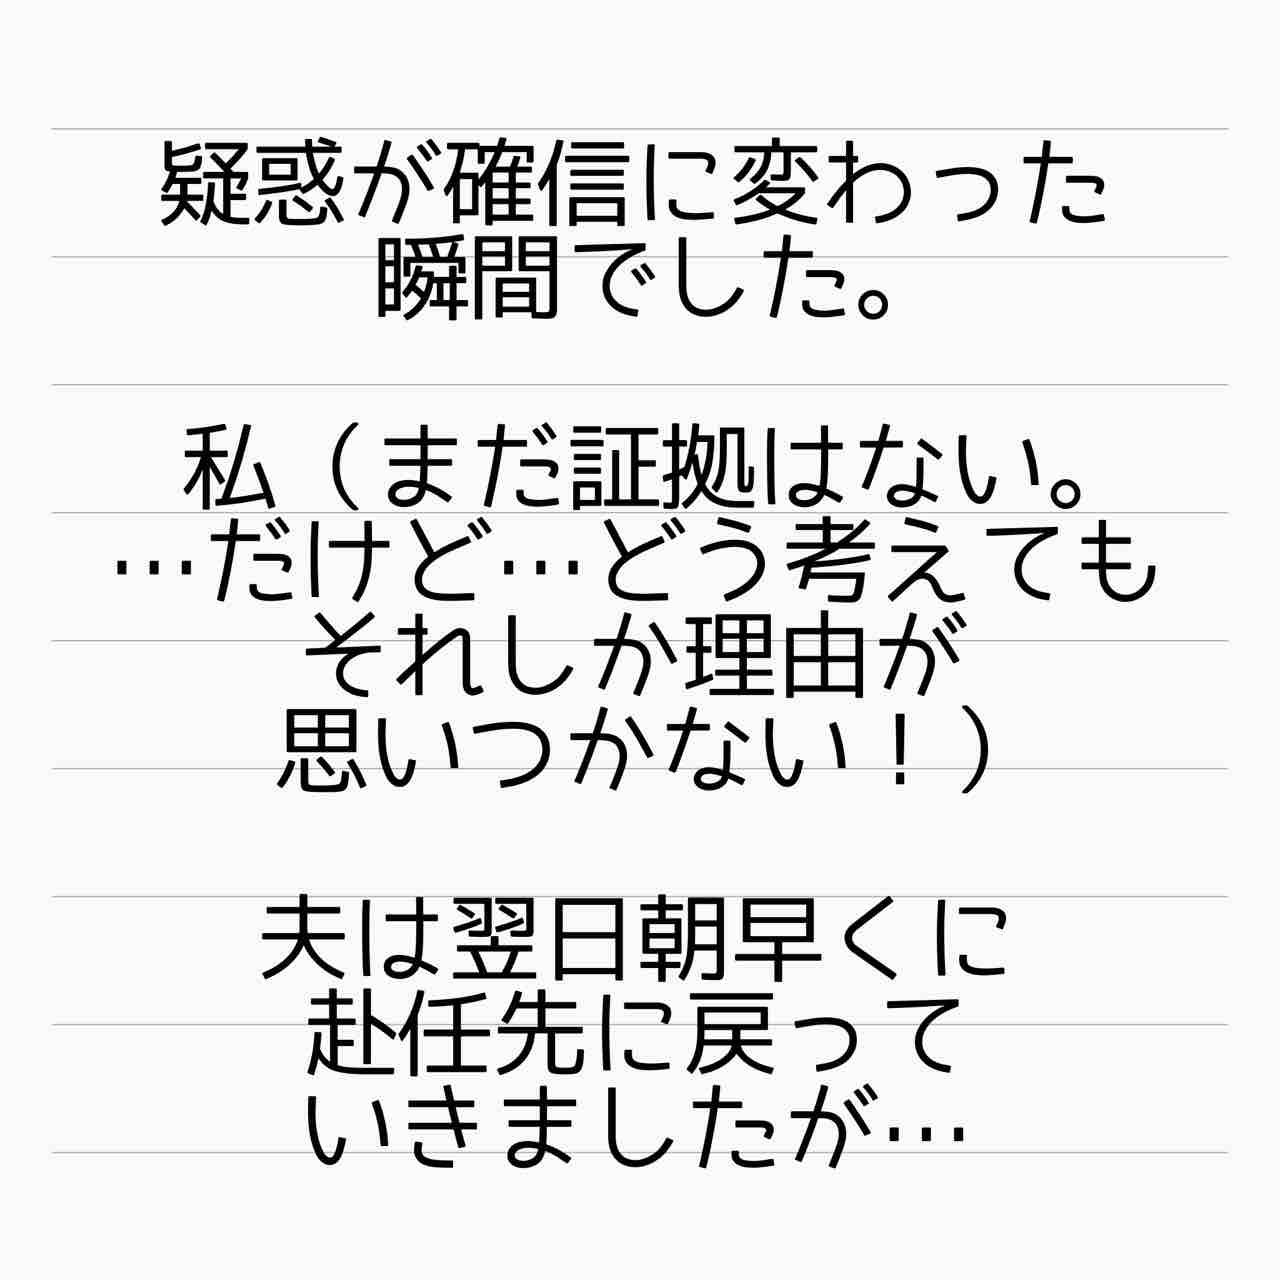 疑惑が確信に変わった
瞬間でした。
私（まだ証拠はない。
…だけど…どう考えても
それしか理由が
思いつかない！）
夫は翌日朝早くに
赴任先に戻って
いきましたが…